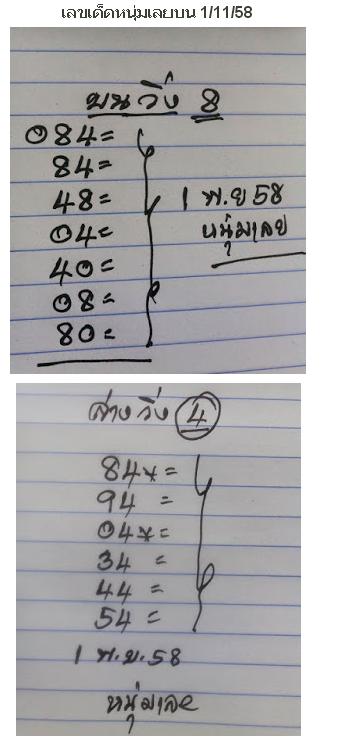 เลขเด็ดหนุ่มเลยบน 1/11/58
บนวิ่ง 8
084=
84=
48=
04=
40=
08=
80=
1 พ.ย 58
หนุ่มเลย
ล่างวิ่ง 4
84*=
94 =
04*=
34 =
44 =
54 =
1 พ.ย.58
หนุ่มเลย